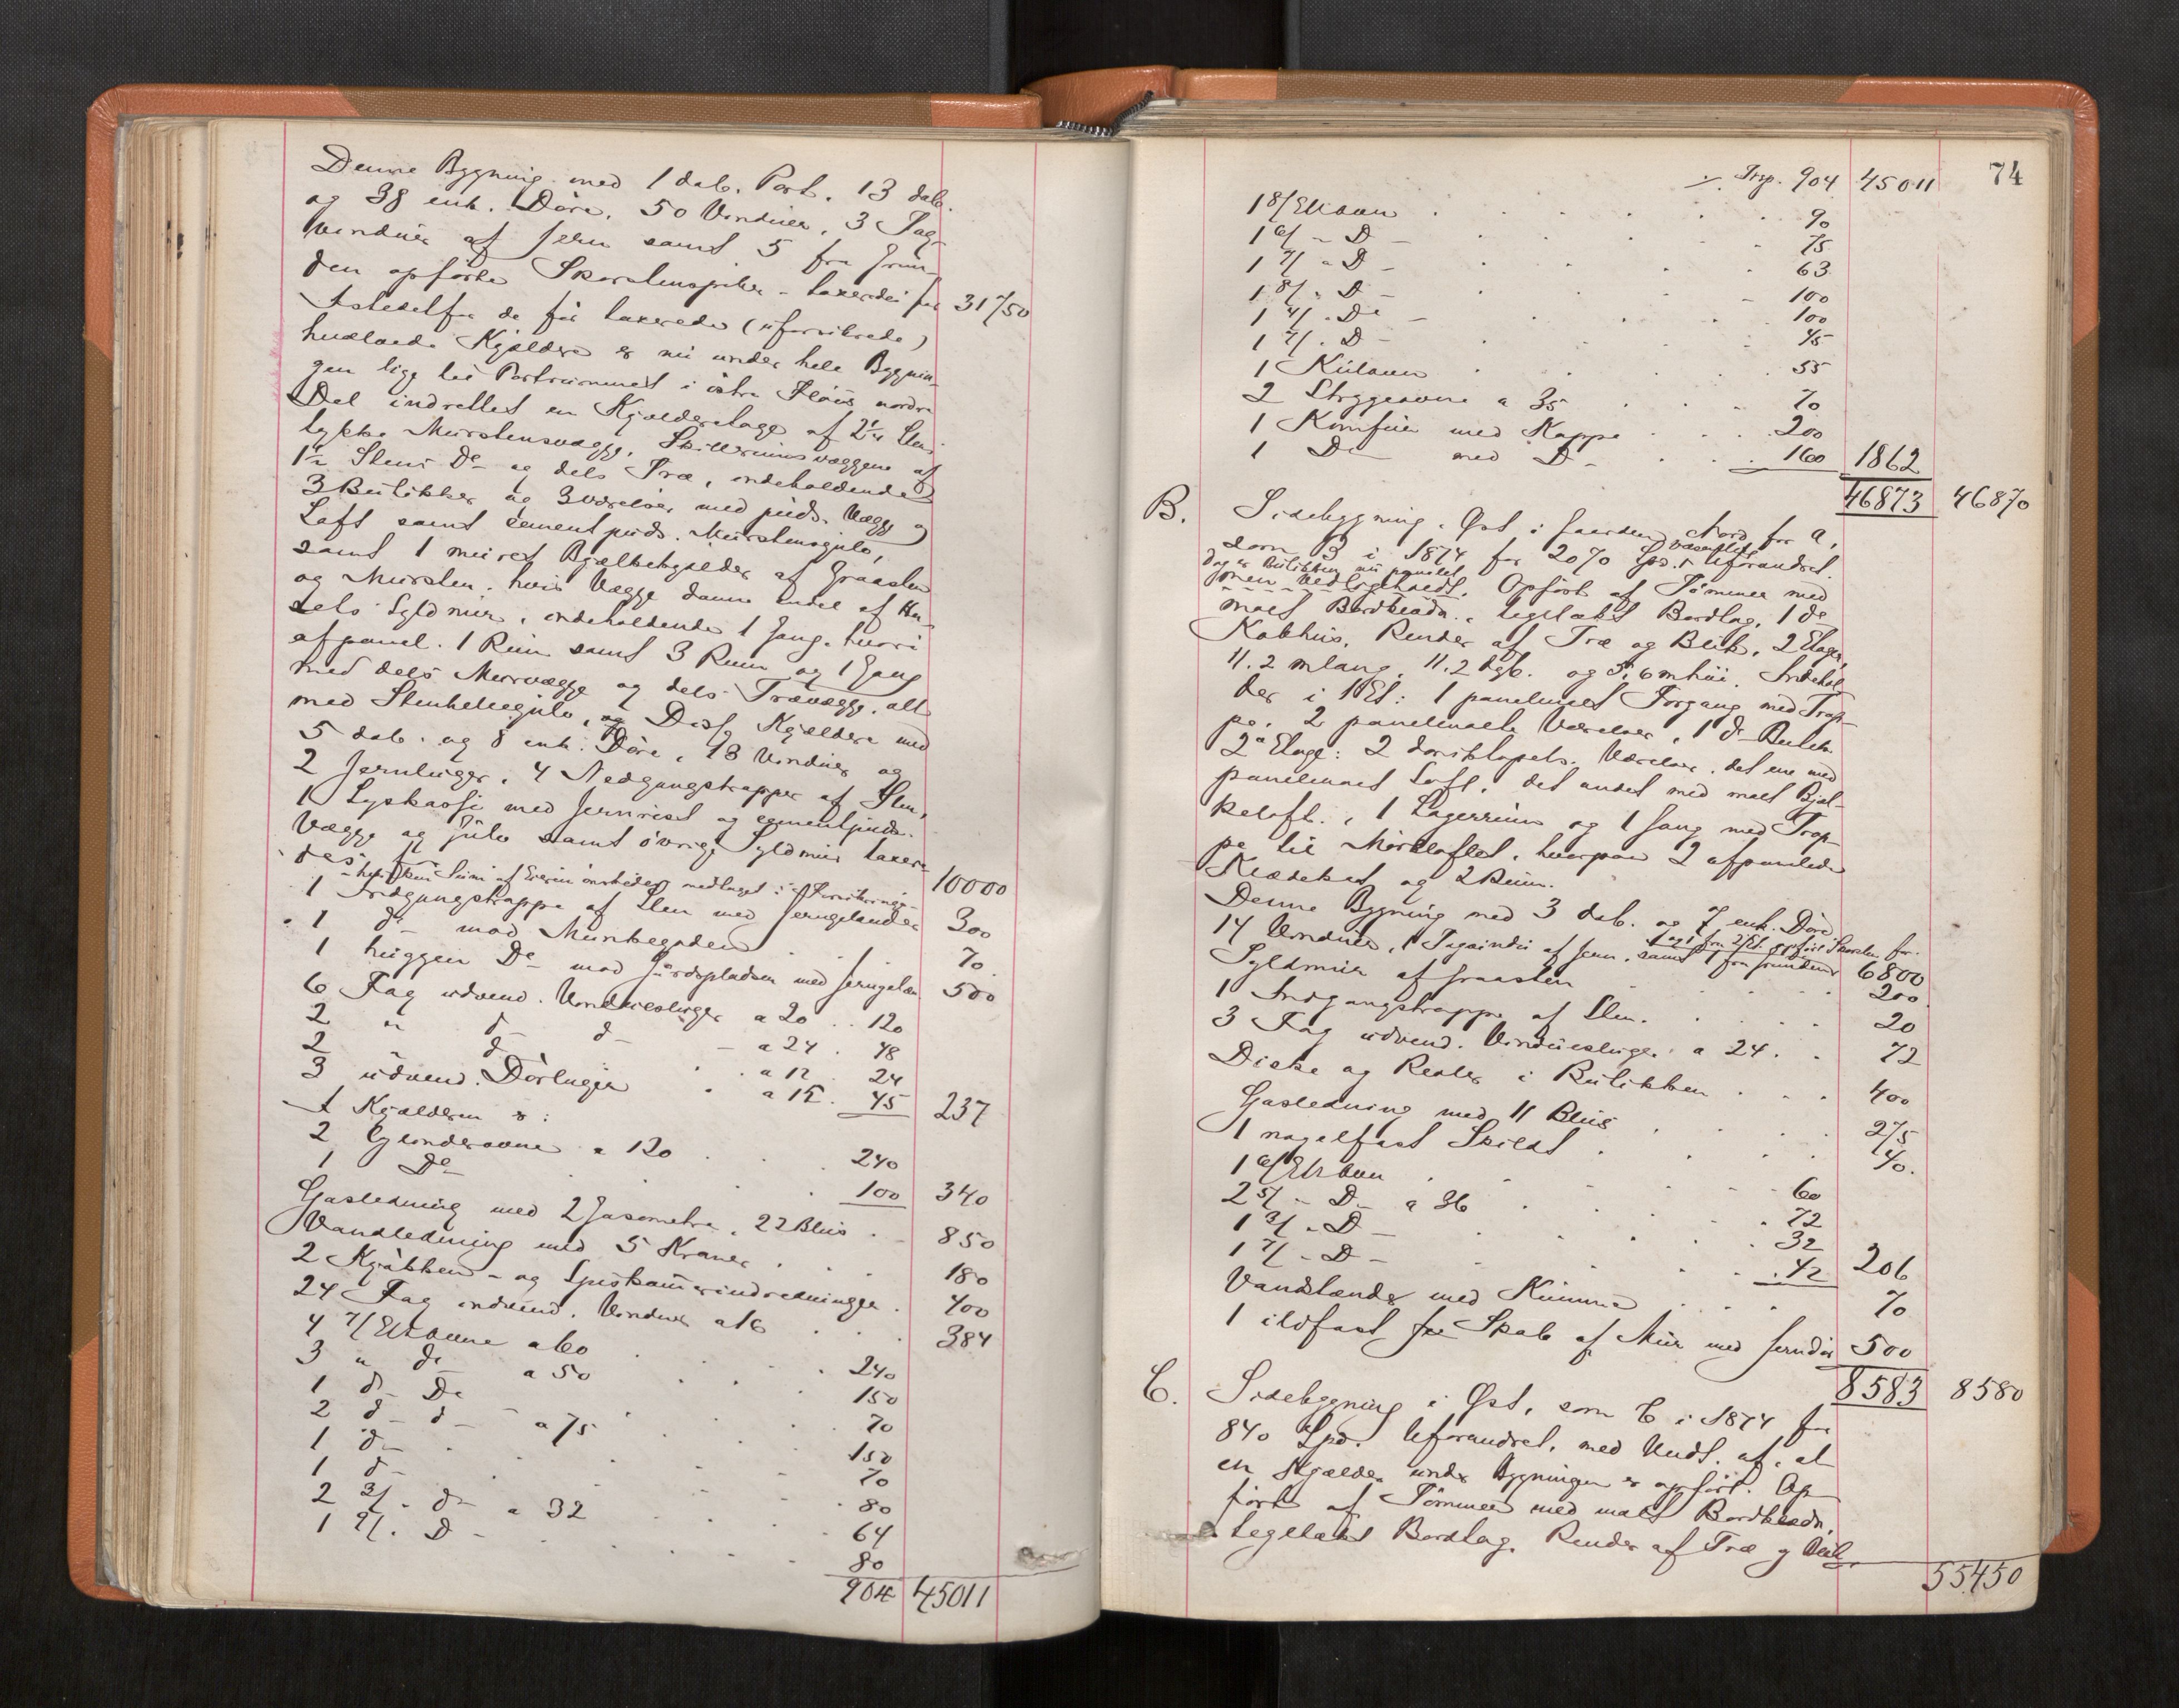 Denne Bygning med 1 dob. Port, 13 dob.
og 38 enk. Döre, 50 Vinduer, 3 Tag-
vinduer af Jern samt 5 fra Grun-
den opförte Skorstenspiber - taxerdes for 31750
Istedetfor de för taxerede (uforsikrede)
hvælvede Kjeldere er nu under hele Bygnin-
gen lige til Portrummet i östre Flöis nordre
Del indrettet en Kjælderetage af 2 1/4 Stens
tykke Murstensvægge, Skillerumsvæggene af
1 1/2 Stens Do og dels Træ, indeholdende
3 Butikker og 3 værelser med puds. Vægge og
Loft samt cementpuds. Murstensgulv,
samt 1 muret Bjælkekjelder af Graasten
og Mursten, hvis Vægge danne endel af Hu-
sets Syldmur, indeholdende 1 Gang, hvori
afpanel. 1 Rum samt 3 Rum og 1 Gang
med dels Murvægge og dels Trævægge, alt
med Stenhellegulv, og Disse Kjeldere med
5 dob. og 8 enk. Döre, 13 Vinduer og
2 Jernluger, 4 Nedgangstrapper af Sten,
1 Lyskasse med Jernrist og cementpuds.
Vægge og gulv samt övrige Syldmur taxere-
des for 10000
hvilken Sum af Eieren önskedes medtaget i Forsikringen
1 Indgangstrappe af Sten med Jerngelænder 300
1 do mod Munkegaden . . . 70
1 huggen Do mod Gårdspladsen med Jerngelæn 500
6 Fag udvend. Vinduesluger a 20 . . 120
2 " do do - a 24 . 48
2 do - a 12 . 24
3 udvend. Dörluger . a 15. 45 237
I Kjælderen er:
2 Cylinderovne a 120 . . . 240
1 Do . . . . 100 340
Gasledning med 2 Gasometre, 22 Blus . - 850
Vandledning med 5 Kraner . . . 180
2 Kjökken - og Spiskammerindredninger . 400
24 Fag indvend. Vinduer a 16 . . . 384
4 7/Etr Ovne a 60 . . . 240
3 " do a 50 . . . 150
1 do Do - . . . 70
2 d - d - a 75 . . . 150
1 d - . . . . 70
1 d - . . . . 80
2 3/ . d - a 32 . . . 64
1 9/ . D - . . . . 80
904 45011
74
./. Trsp. 904 45011
1 8/Etr Ovn . . . . . 90
1 6/ - D - . . . . 75
1 7/ - D - . . . . 63
1 8/ . D - . . . . 100
1 4/ . Do - . . . . 100
1 7/ . D - . . . . 45
1 Kulovn . . . . 55
2 Strygeovne a 35 . . . 70
1 Komfur med Kappe . . . 200
1 Do med D - . . . 160 1862
46873 46870
B. Sidebygning i Öst i Gaarden Nord for A,
som B i 1874 for 2070 Spd. væsentlig uforandret.
dog er Butikken nu panelet
men vedligeholdt. Opfört af Tömmer med
malt Bordklædn., teglakt Bordtag, 1 do
Kobhus, Render af Træ og Blik, 2 Etager,
11.2 m lang, 11.2 dyb. og 5,6 m höi. Indehol-
der i 1 Et: 1 panelmalet Forgang med Trap-
pe, 2 panelmalte Værelser, 1 do Butik.
2n Etage: 2 do Værelser, det ene med
panelmalt Loft, det andet med malt Bjæl-
keloft, 1 Lagerrum og 1 Gang med Trap-
pe til Mörkloftet, hvorpaa 2 afpanlede
Klædekot og 2 Rum.
Denne Bygning med 3 dob. og 7 enk. Döre,
14 Vinduer, 1 Tagvindu af Jern, samt 1 fra Grunden
og 1 fra 2 Et. opfört Skorsten for. 6800
Syldmur af Graasten . . . . 200
1 Indgangstrappe af Sten . . . . 20
3 Fag udvend. Vinduesluger a 24 . . 72
Diske og Reoler i Butikken . . . 400
Gasledning med 11 Blus . . . . 275
1 nagelfast Skildt . . . . 40.
1 6/Etr Ovn . . . . 60
2 5/ - D - a 36 . . . . 72
1 3/ . D - . . . . 32
1 7/ - D - . . . . 42 206
Vandstænder med Kumme . . . 70
1 ildfast Skab af Mur med Jerndör 500
8583 8580
C. Sidebygning i Öst, som C i 1874 for
840 Spd. Uforandret, med Undt. af, at
en Kjælder under Bygningen er opfört. Op-
fört af Tömmer med malt Bordklædn,
teglakt Bordtag, Render af Træ og Blik,
55450